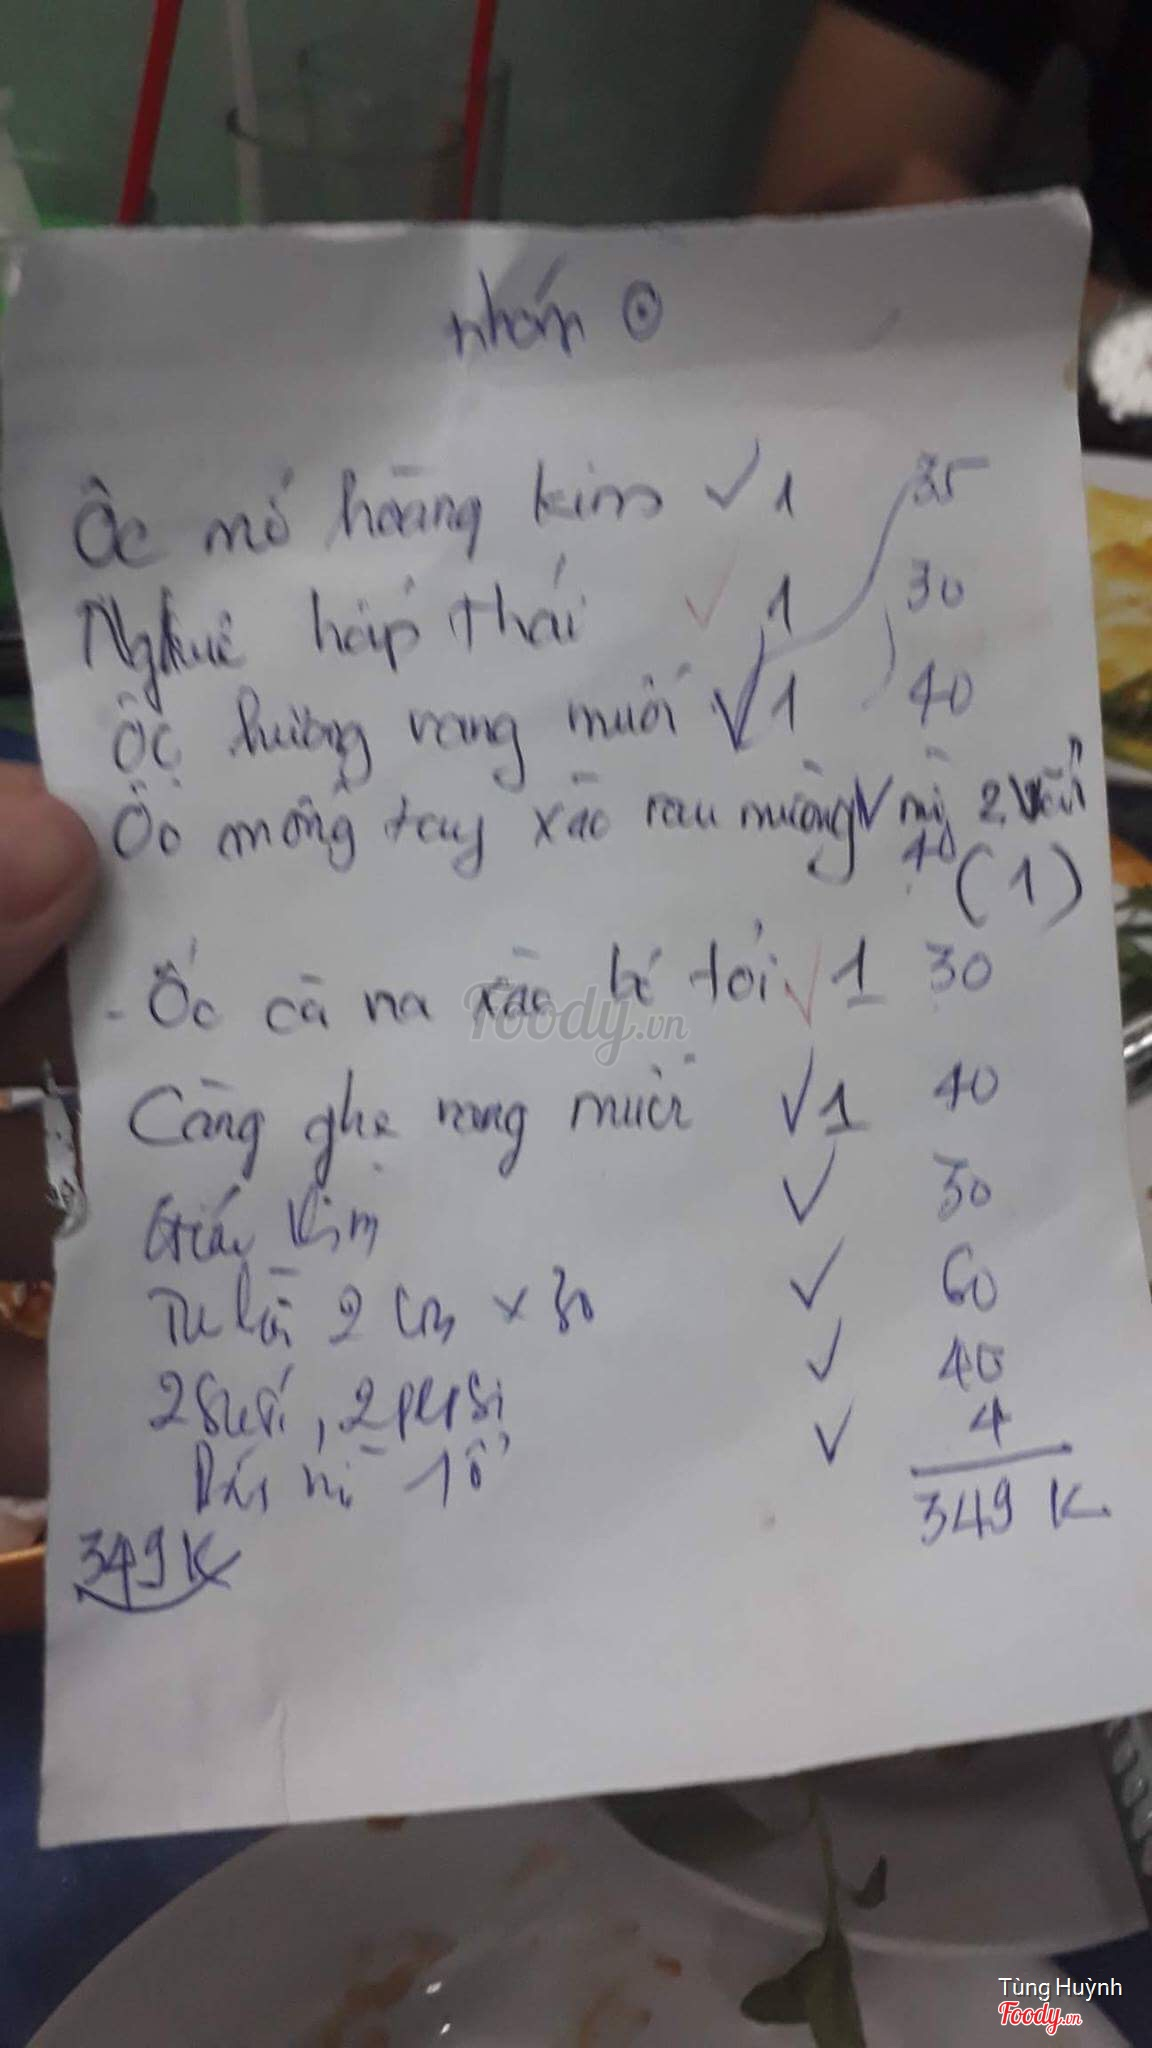 nhóm
Ốc mỡ hoàng kim 1 35
Nghêu hấp thái 1 30
Ốc hương rang muối 1 40
Ốc móng tay xào rau muống mì 2 40 (1)
- Ốc cà na xào bơ tỏi 1 30
Càng ghẹ rang muối 1 40
30
2 con x 30 60
2 suối, 2 pepsi 40
Bánh mì 1 ổ 4
349 K
349 K
Foody.vn
Tùng Huỳnh
Foody.vn